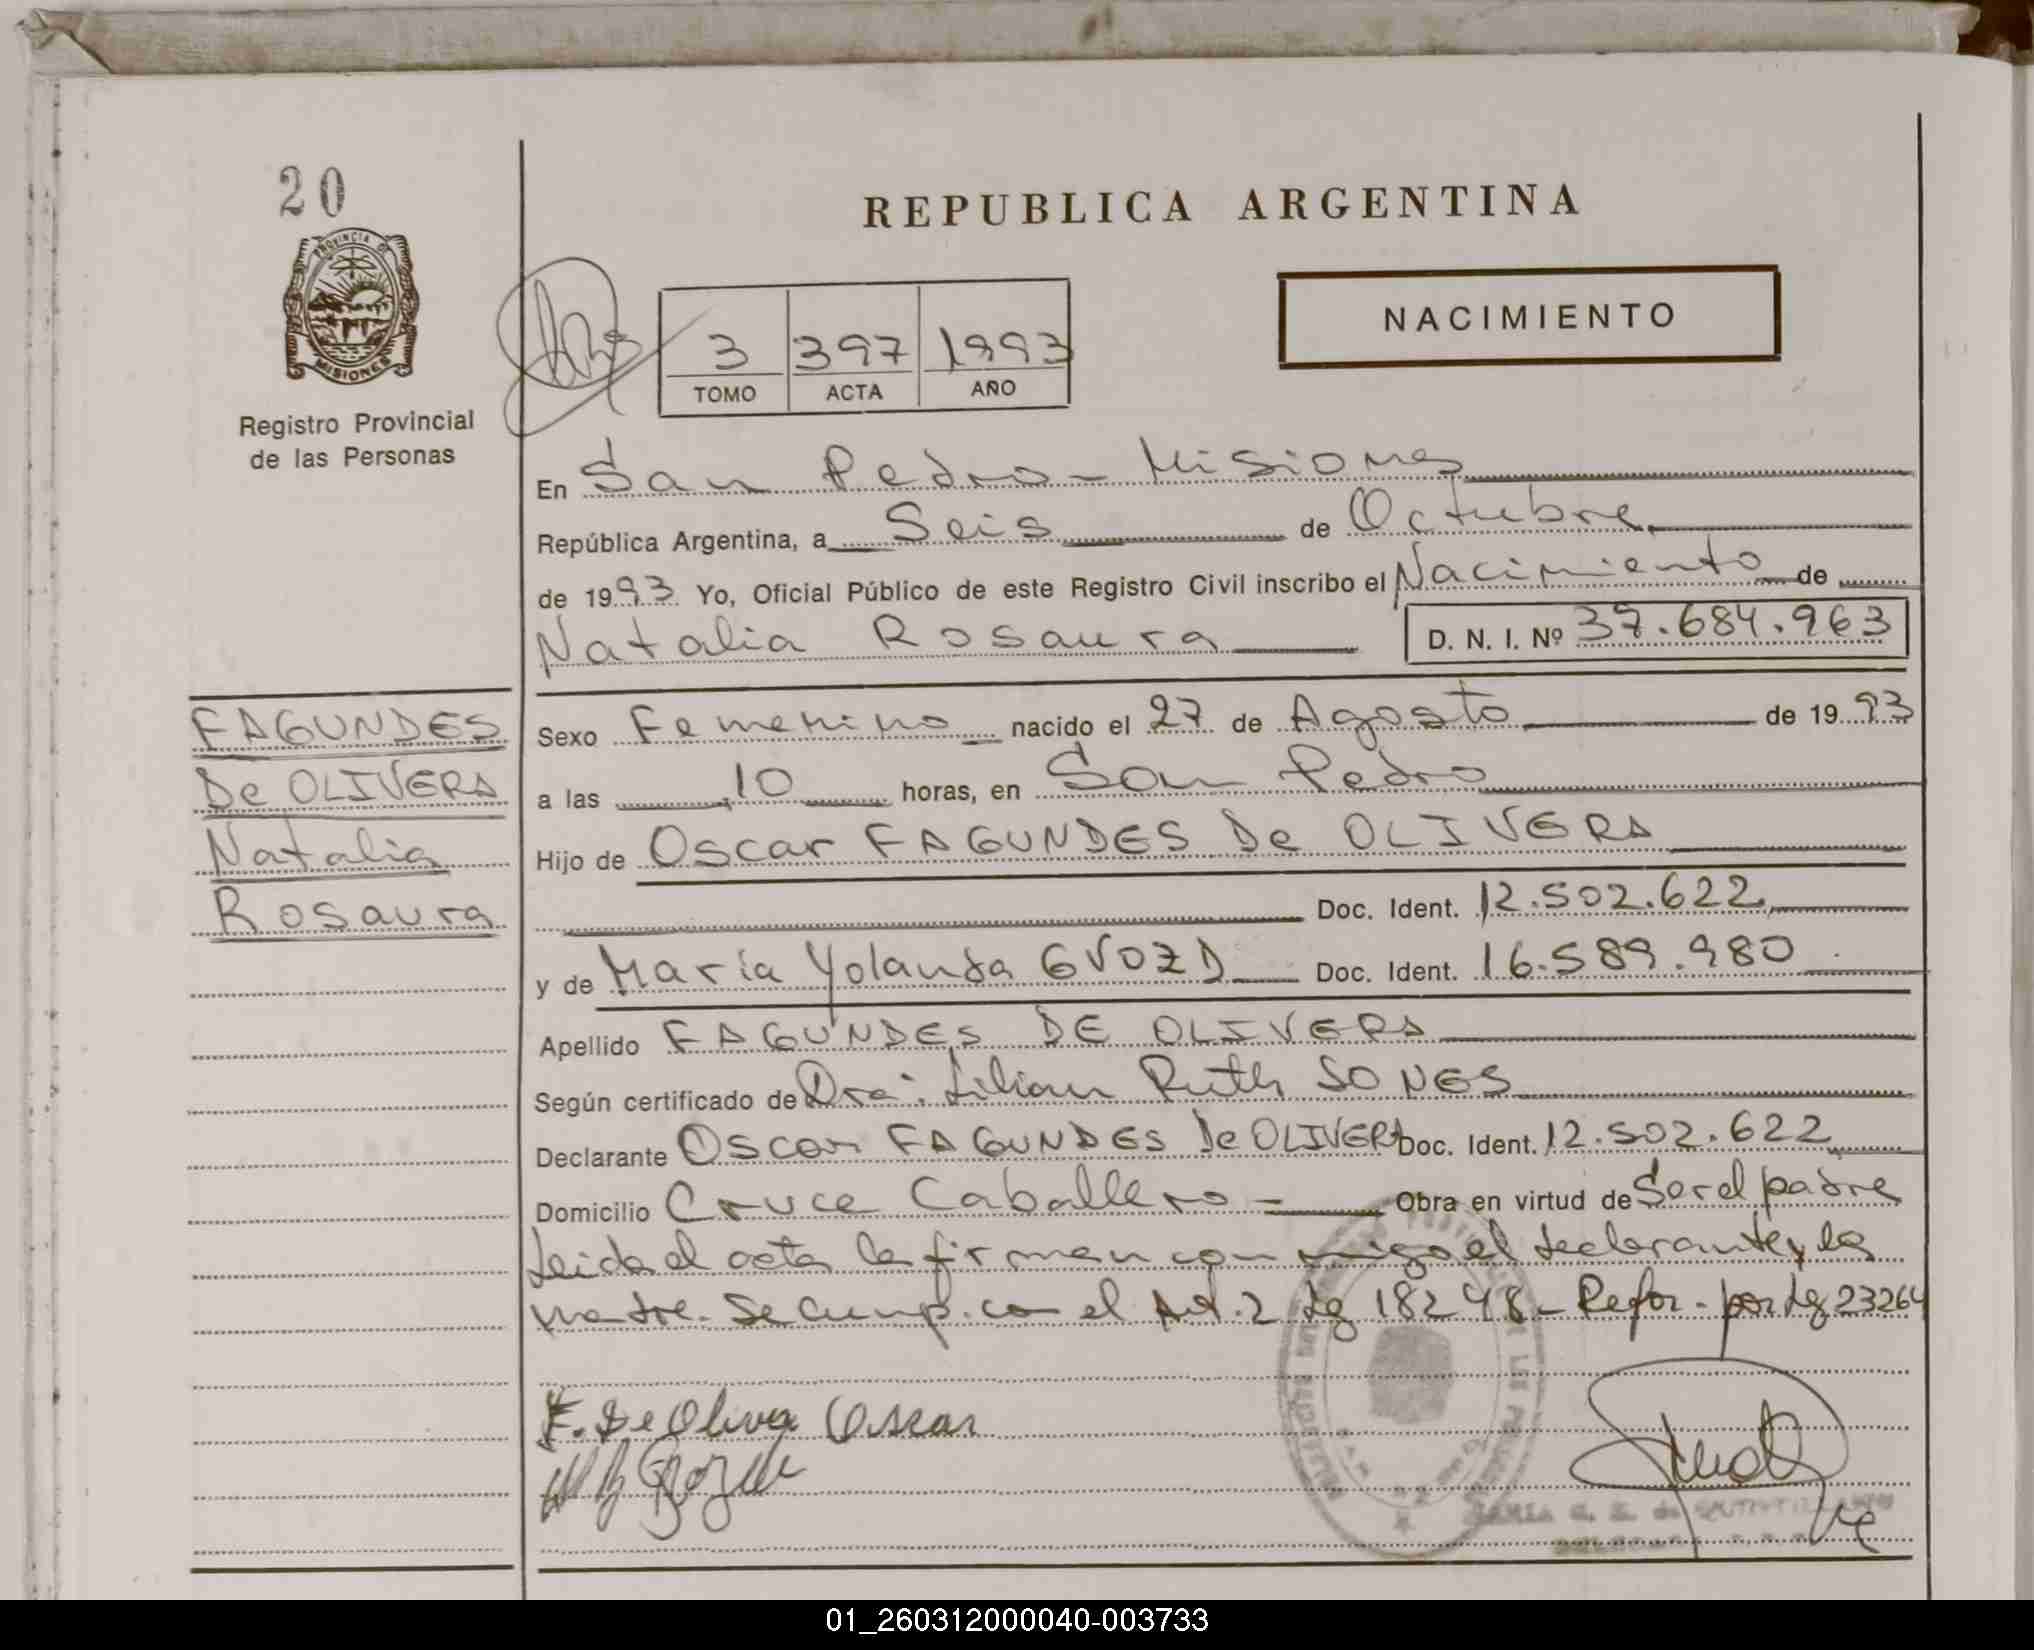 20
PROVINCIA DE
MISIONES
Registro Provincial
de las Personas
REPUBLICA ARGENTINA
NACIMIENTO
3 397 1993
TOMO ACTA AÑO
En San Pedro - Misiones
República Argentina, a Seis de Octubre
de 1993 Yo, Oficial Público de este Registro Civil inscribo el Nacimiento de
Natalia Rosaura D. N. I. Nº 37.684.963
FAGUNDES
De OLIVERA
Natalia
Rosaura
Sexo Femenino nacido el 27 de Agosto de 1993
a las 10 horas, en San Pedro
Hijo de Oscar FAGUNDES De OLIVERA
Doc. Ident. 12.502.622
y de María Yolanda GVOZD Doc. Ident. 16.589.980
Apellido FAGUNDES DE OLIVERA
Según certificado de Dra: Lilian Ruth SONES
Declarante Oscar FAGUNDES De OLIVERA Doc. Ident. 12.502.622
Domicilio Cruce Caballero - Obra en virtud de Ser el padre
Leida el acta la firman conmigo el declarante y la
madre. Se cump. con el Art. 2 Ley 18248 - Refor. por Ley 23264
F. De Oliva Oscar
01_260312000040-003733